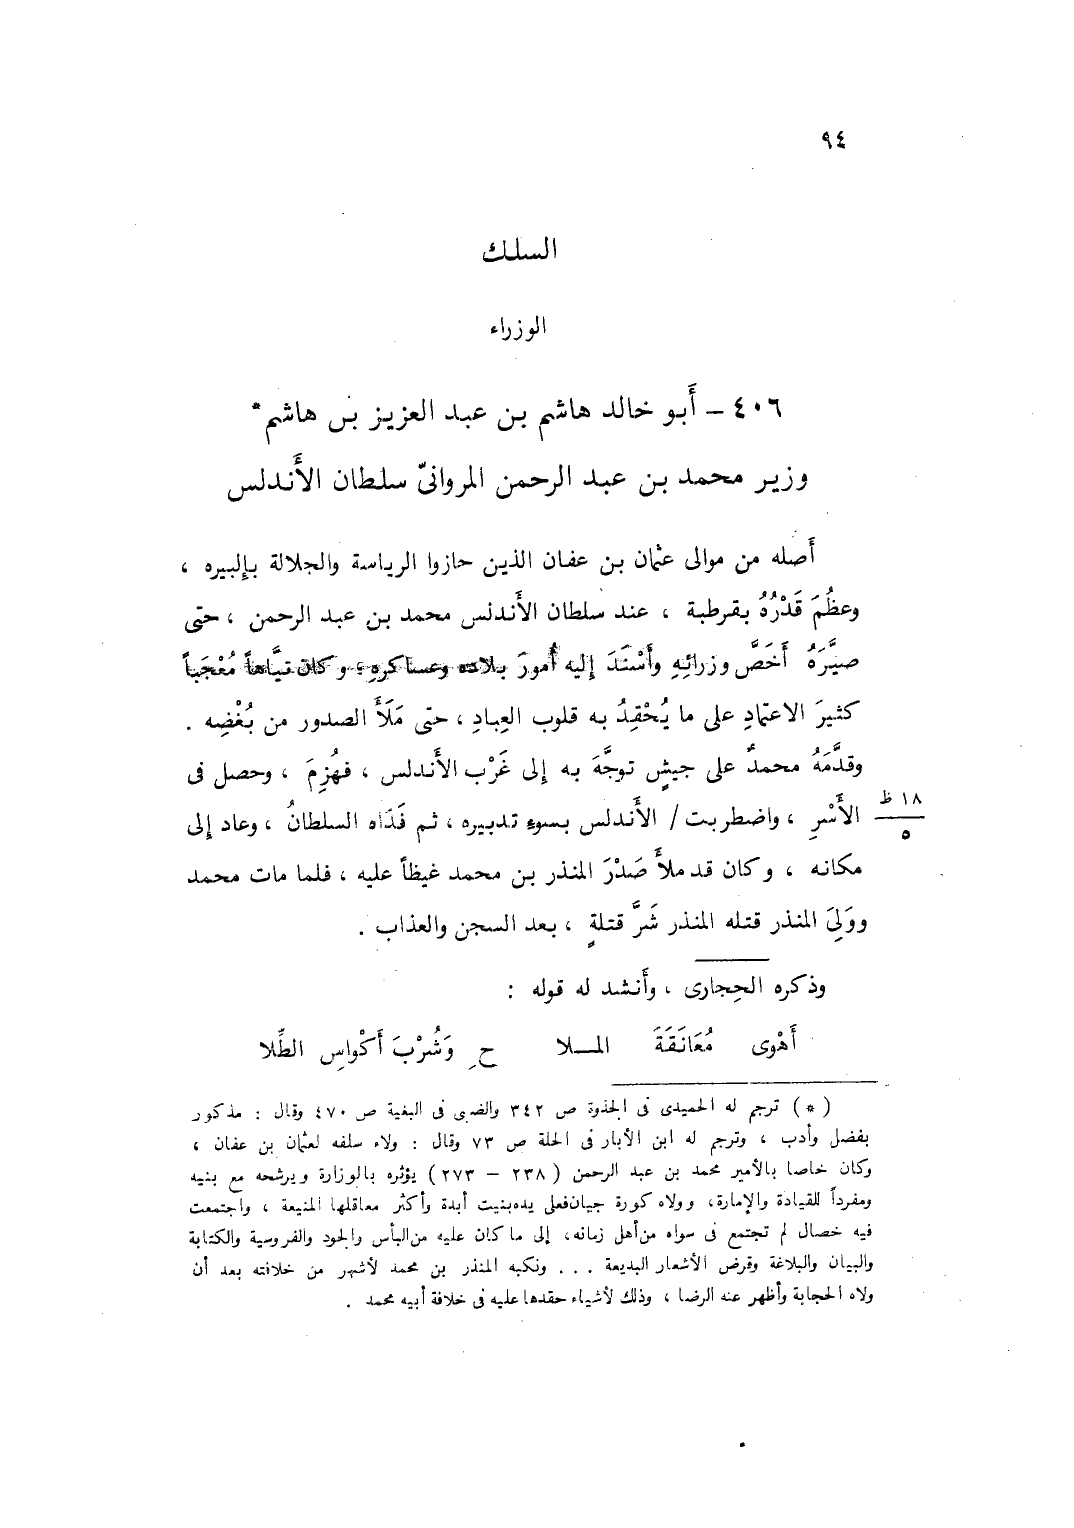 ٩٤
السلك
الوزراء
٤٠٦ – أَبو خالد هاشم بن عبد العزيز بن هاشم*
وزير محمد بن عبد الرحمن المروانىّ سلطان الأَندلس
أَصله من موالى عثمان بن عفان الذين حازوا الرياسة والجلالة بإلبيره ،
وعظُمَ قَدْرُهُ بقرطبة ، عند سلطان الأَندلس محمد بن عبد الرحمن ، حتى
صيَّرَهُ أَخَصَّ وزرائِهِ وأَسْنَدَ إليه أُمورَ بلاده وعساكرِهِ ؛ وكان تيَّاهاً مُعْجَباً
كثيرَ الاعتمادِ على ما يُحْقِدُ به قلوب العِبادِ ، حتى مَلَأَ الصدور من بُغْضِه .
وقدَّمَهُ محمدٌ على جيشٍ توجَّهَ به إلى غَرْب الأَندلس ، فهُزِمَ ، وحصل فى
الأَسْرِ ، واضطربت / الأَندلس بسوءِ تدبيره ، ثم فَدَاه السلطانُ ، وعاد إلى
١٨ ظ
٥
مكانه ، وكان قد ملأَ صَدْرَ المنذر بن محمد غيظاً عليه ، فلما مات محمد
ووَلِىَ المنذر قتله المنذر شَرَّ قتلةٍ ، بعد السجن والعذاب .
وذكره الحِجارى ، وأَنشد له قوله :
أَهْوى مُعَانَقَةَ المـلا حِ وَشُرْبَ أَكْواسِ الطِّلا
( * ) ترجم له الحميدى فى الجذوة ص ٣٤٢ والضبى فى البغية ص ٤٧٠ وقال : مذكور
بفضل وأدب ، وترجم له ابن الأبار فى الحلة ص ٧٣ وقال : ولاء سلفه لعثمان بن عفان ،
وكان خاصا بالأمير محمد بن عبد الرحمن ( ٢٣٨ – ٢٧٣ ) يؤثره بالوزارة ويرشحه مع بنيه
ومفرداً للقيادة والإمارة، وولاه كورة جيان فعلى يده بنيت أبدة وأكثر معاقلها المنيعة ، واجتمعت
فيه خصال لم تجتمع فى سواه من أهل زمانه، إلى ما كان عليه من البأس والجود والفروسية والكتابة
والبيان والبلاغة وقرض الأشعار البديعة . . . ونكبه المنذر بن محمد لأشهر من خلافته بعد أن
ولاه الحجابة وأظهر عنه الرضا ، وذلك لأشياء حقدها عليه فى خلافة أبيه محمد .